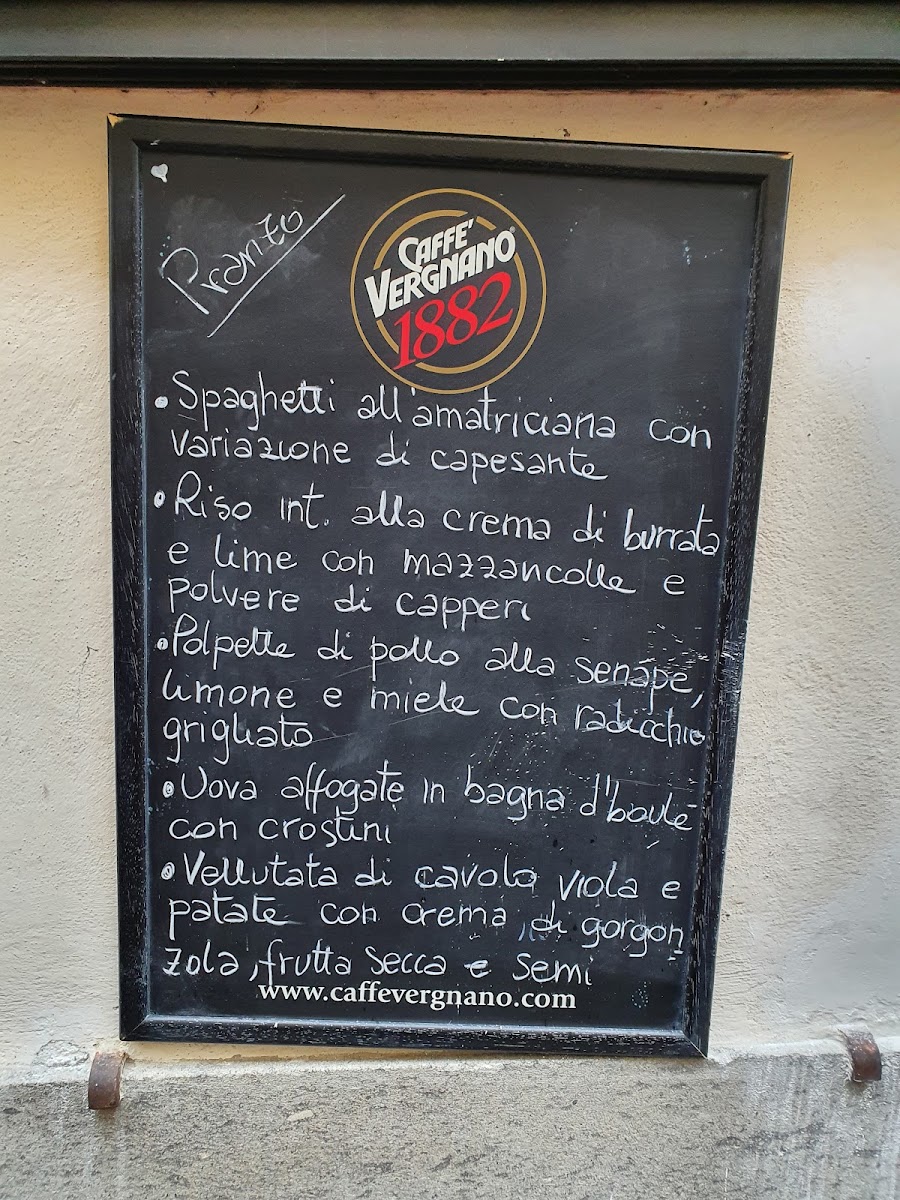 Pranzo
CAFFE'
VERGNANO®
1882
• Spaghetti all'amatriciana con
variazione di capesante
• Riso int. alla crema di burrata
e lime con mazzancolle e
polvere di capperi
• Polpette di pollo alla senape,
limone e miele con radicchio
grigliato
• Uova affogate in bagna d'baulè
con crostini
• Vellutata di cavolo viola e
patate con crema di gorgon
zola, frutta secca e semi
www.caffevergnano.com